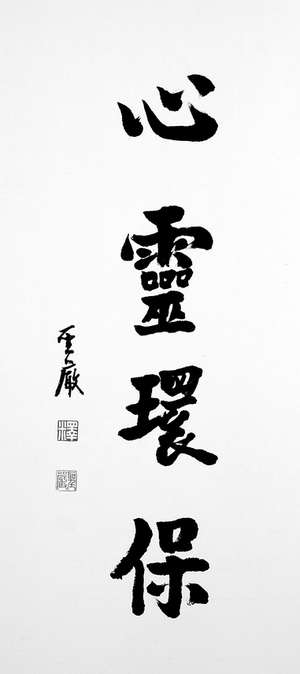 心靈環保
聖嚴